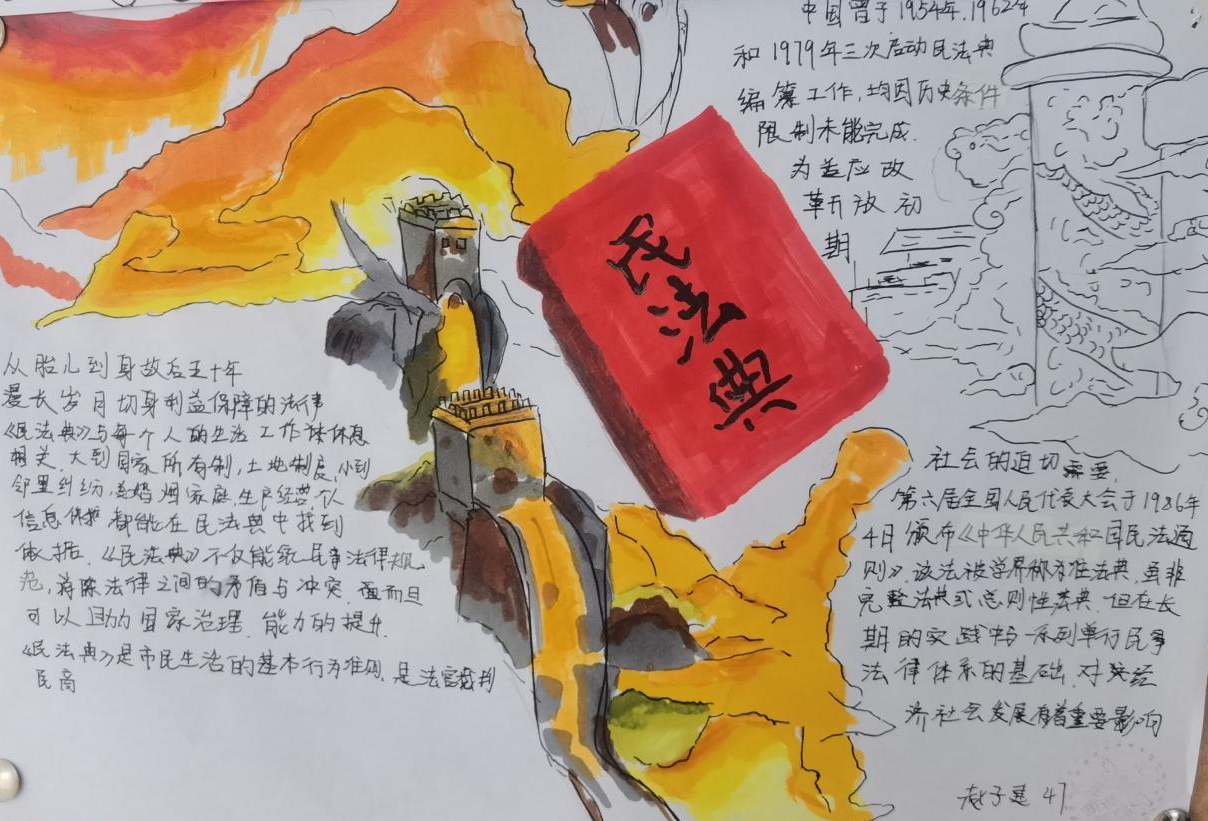 中国曾于1954年.1962年
和1979年三次启动民法典
编纂工作,均因历史条件
限制未能完成.
为适应改
革开放初
期
民法典
从胎儿到身故后五十年
漫长岁月切身利益保障的法律
《民法典》与每个人的生活工作休息
相关.大到国家所有制,土地制度,小到
邻里纠纷,婚姻家庭,生产经营
信息保护都能在民法典中找到
依据.《民法典》不仅能统一民事法律规
范,消除法律之间的矛盾与冲突.而且
可以助力国家治理.能力的提升.
《民法典》是市民生活的基本行为准则.是法官裁判
民商
社会的迫切需要.
第六届全国人民代表大会于1986年
4月颁布《中华人民共和国民法通
则》.该法被学界称为准法典,虽非
完整法典或总则性法典.但在长
期的实践中为一系列单行民事
法律体系的基础.对经
济社会发展有着重要影响
赵子 47